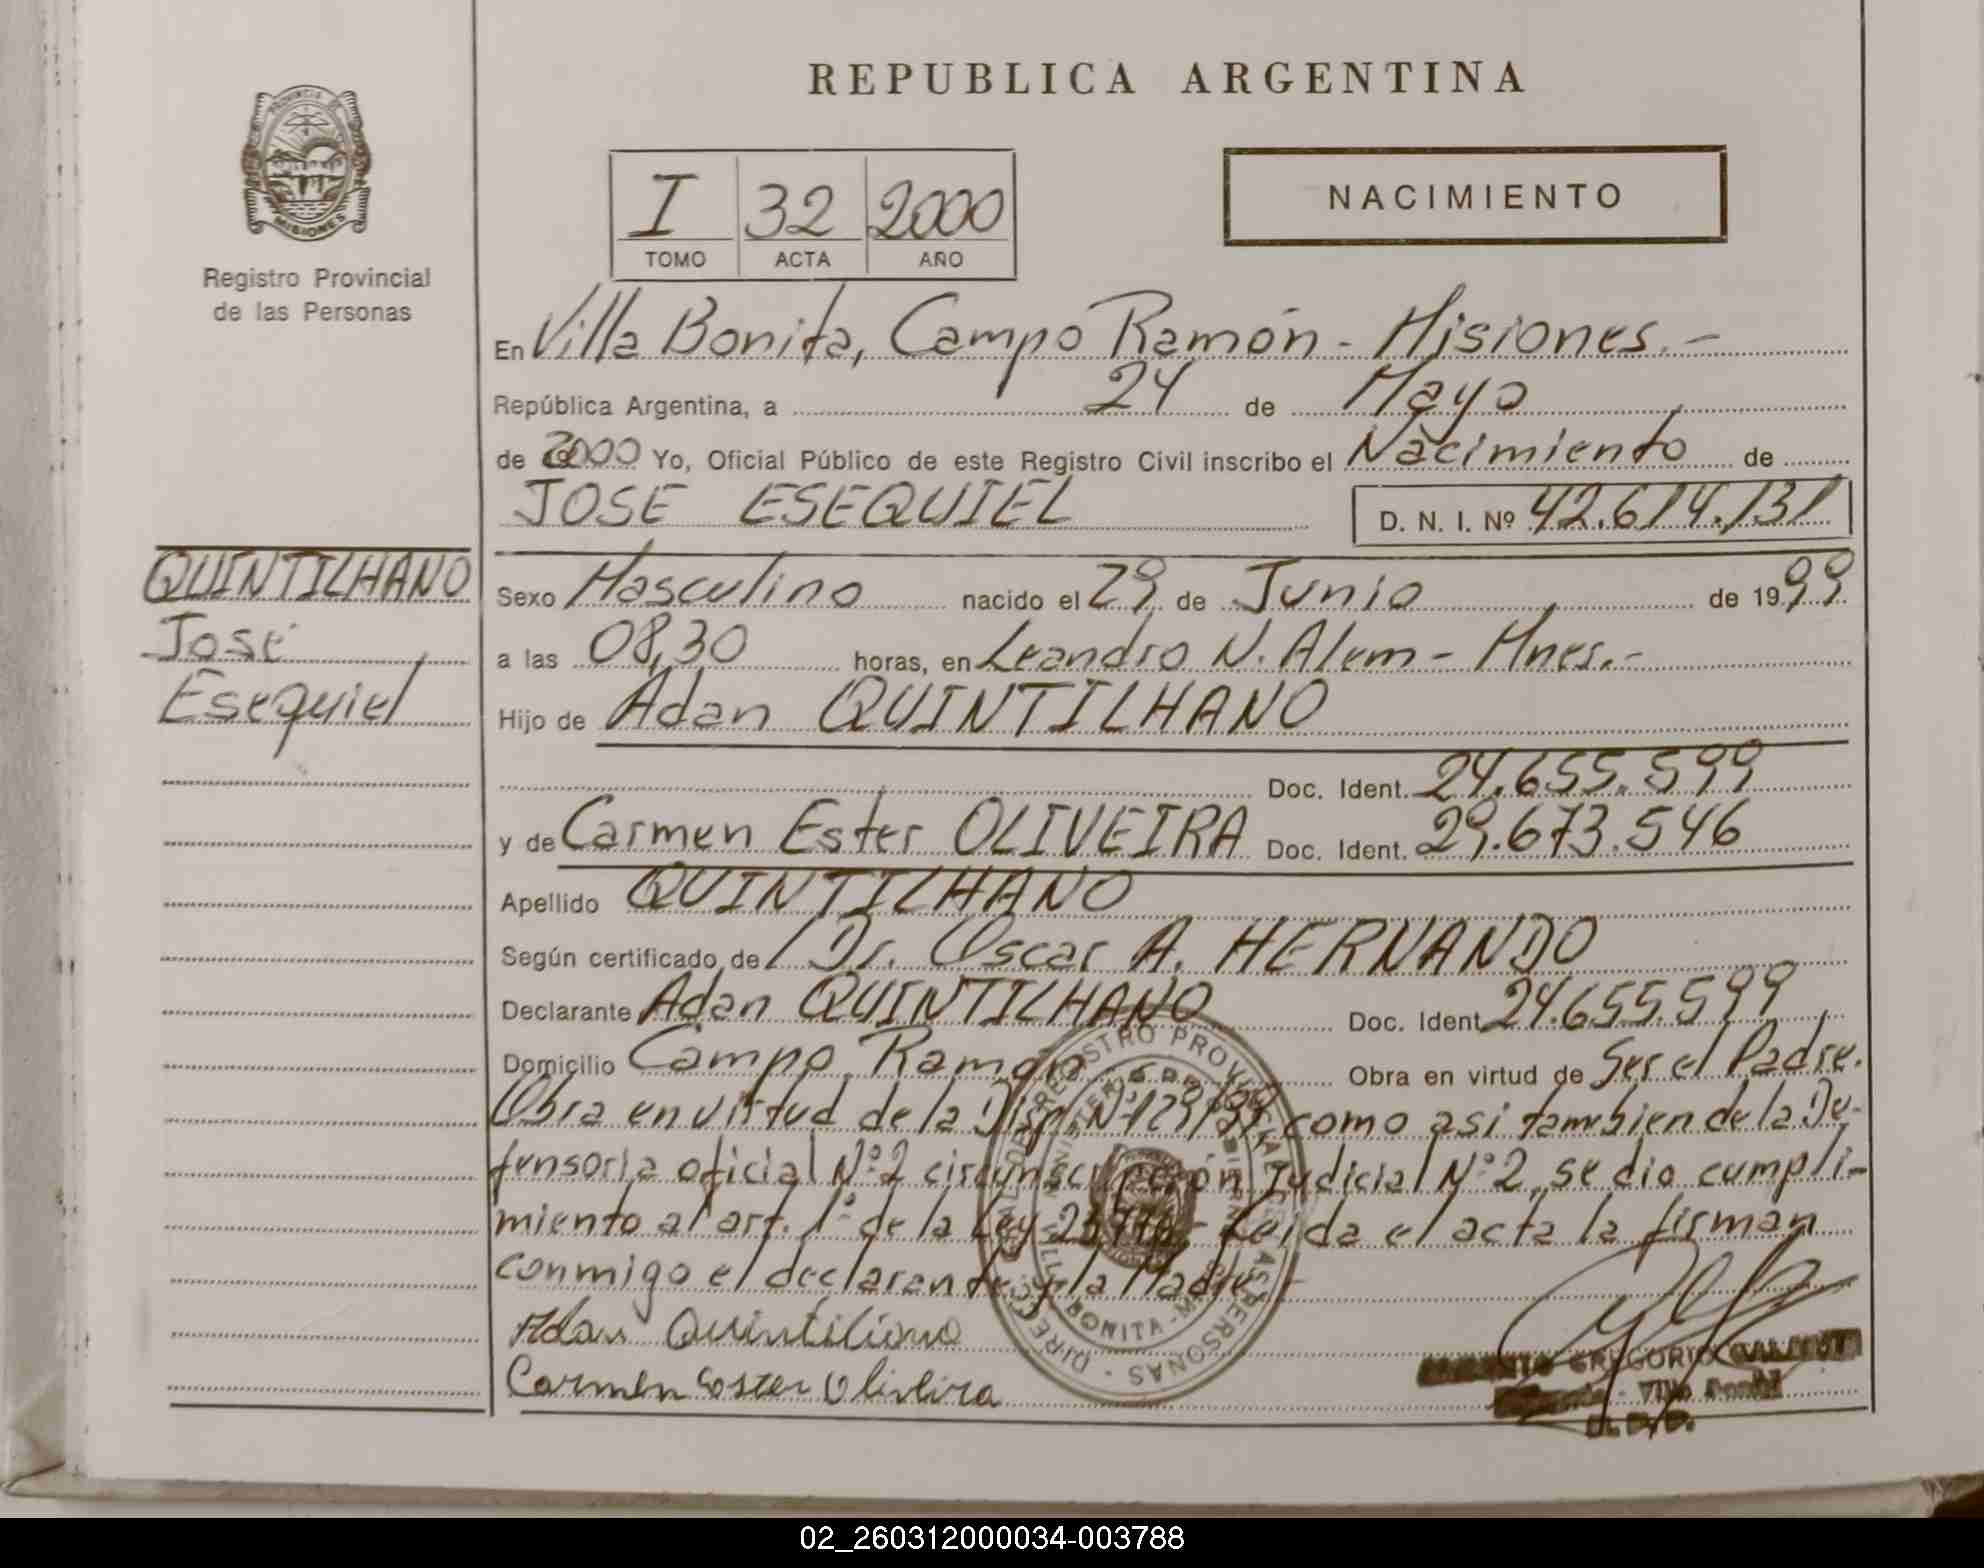 REPUBLICA ARGENTINA
PROVINCIA DE
MISIONES
Registro Provincial
de las Personas
I 32 2000
TOMO ACTA AÑO
NACIMIENTO
En Villa Bonita, Campo Ramón - Misiones.-
República Argentina, a 24 de Mayo
de 2000 Yo, Oficial Público de este Registro Civil inscribo el Nacimiento de
JOSE ESEQUIEL D. N. I. Nº 42.614.131
QUINTILHANO
José
Esequiel
Sexo Masculino nacido el 29 de Junio de 1999
a las 08,30 horas, en Leandro N. Alem - Mnes.-
Hijo de Adan QUINTILHANO
Doc. Ident. 24.655.599
y de Carmen Ester OLIVEIRA Doc. Ident. 29.673.546
Apellido QUINTILHANO
Según certificado de Dr. Oscar A. HERNANDO
Declarante Adan QUINTILHANO Doc. Ident. 24.655.599
Domicilio Campo Ramon Obra en virtud de Ser el Padre.
Obra en virtud de la Disp. Nº 129/99 como asi tambien de la De-
fensoria oficial Nº 2 circunscripción Judicial Nº 2, se dio cumpli-
miento al art. 1º de la Ley Leida el acta la firman
conmigo el declarante y la Madre
Adan Quintiliano
Carmen Ester Oliveira
GREGORIO
Villa
02_260312000034-003788